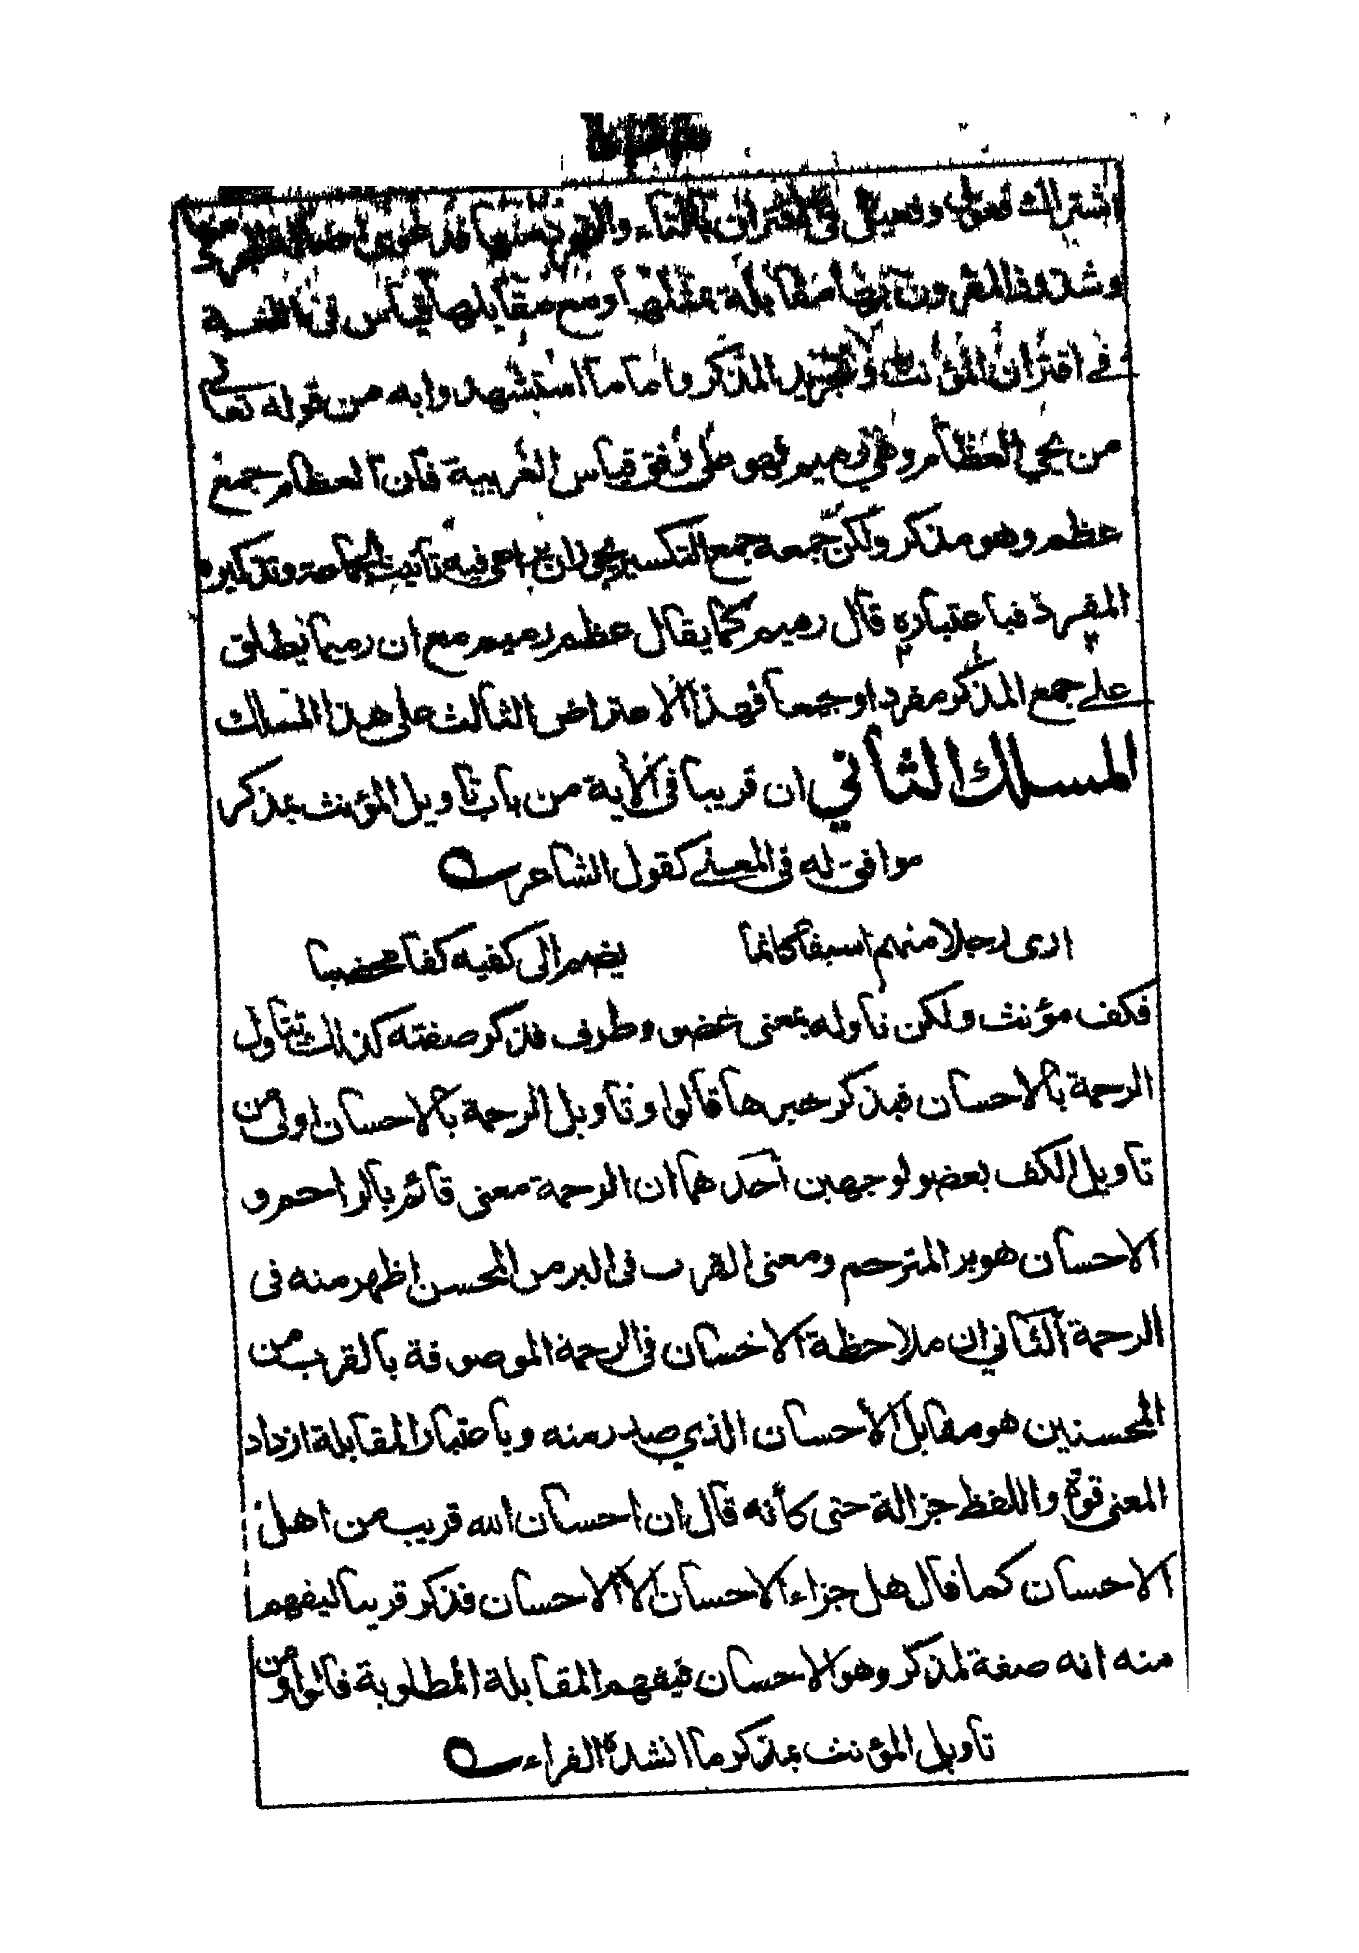 اشتراك فعول وفعيل في اقتران بالتاء والتجرد منها
وشذوذ المقرون بها مقابلة بمثلها ومع مقابلها قياس في
في اقتران المؤنث وتجريد المذكر واما ما استشهدوا به من قوله تعالى
من يحي العظام وهي رميم فهو على وفق قياس العربية فان العظام جمع
عظم وهو مذكر ولكن جمعه جمع التكسير يجوز ان يراعى فيه تأنيث الجماعة وتذكير
المفرد فباعتباره قال رميم كما يقال عظم رميم مع ان رميما يطلق
على جمع المذكر مفردا وجمعا فهذا الاعتراض الثالث على هذا المسلك
المسلك الثاني ان قريبا في الأية من باب تاويل المؤنث بمذكر
موافق له في المعنى كقول الشاعر
ارى رجلا منهم اسيفا كانما يضم الى كفيه كفا مخضبا
فكف مؤنث ولكن تأوله بمعنى عضو وطرف فذكر صفته كذلك تتأول
الرحمة بالاحسان فيذكر خبرها قالوا وتاويل الرحمة بالاحسان اولى من
تاويل الكف بعضو لوجهين أحدهما ان الرحمة معنى قائم بالراحم و
الاحسان هو بر المترحم ومعنى القرب في البر من المحسن اظهر منه في
الرحمة الثاني ان ملاحظة الاحسان في الرحمة الموصوفة بالقرب من
المحسنين هو مقابل الأحسان الذي صدر منه وباعتبار المقابلة ازداد
المعنى قوة واللفظ جزالة حتى كأنه قال ان احسان الله قريب من اهل
الاحسان كما قال هل جزاء الاحسان الا الاحسان فذكر قريبا ليفهم
منه انه صفة لمذكر وهو الاحسان فيفهم المقابلة المطلوبة قالوا ومن
تاويل المؤنث بمذكر ما انشده الفراء